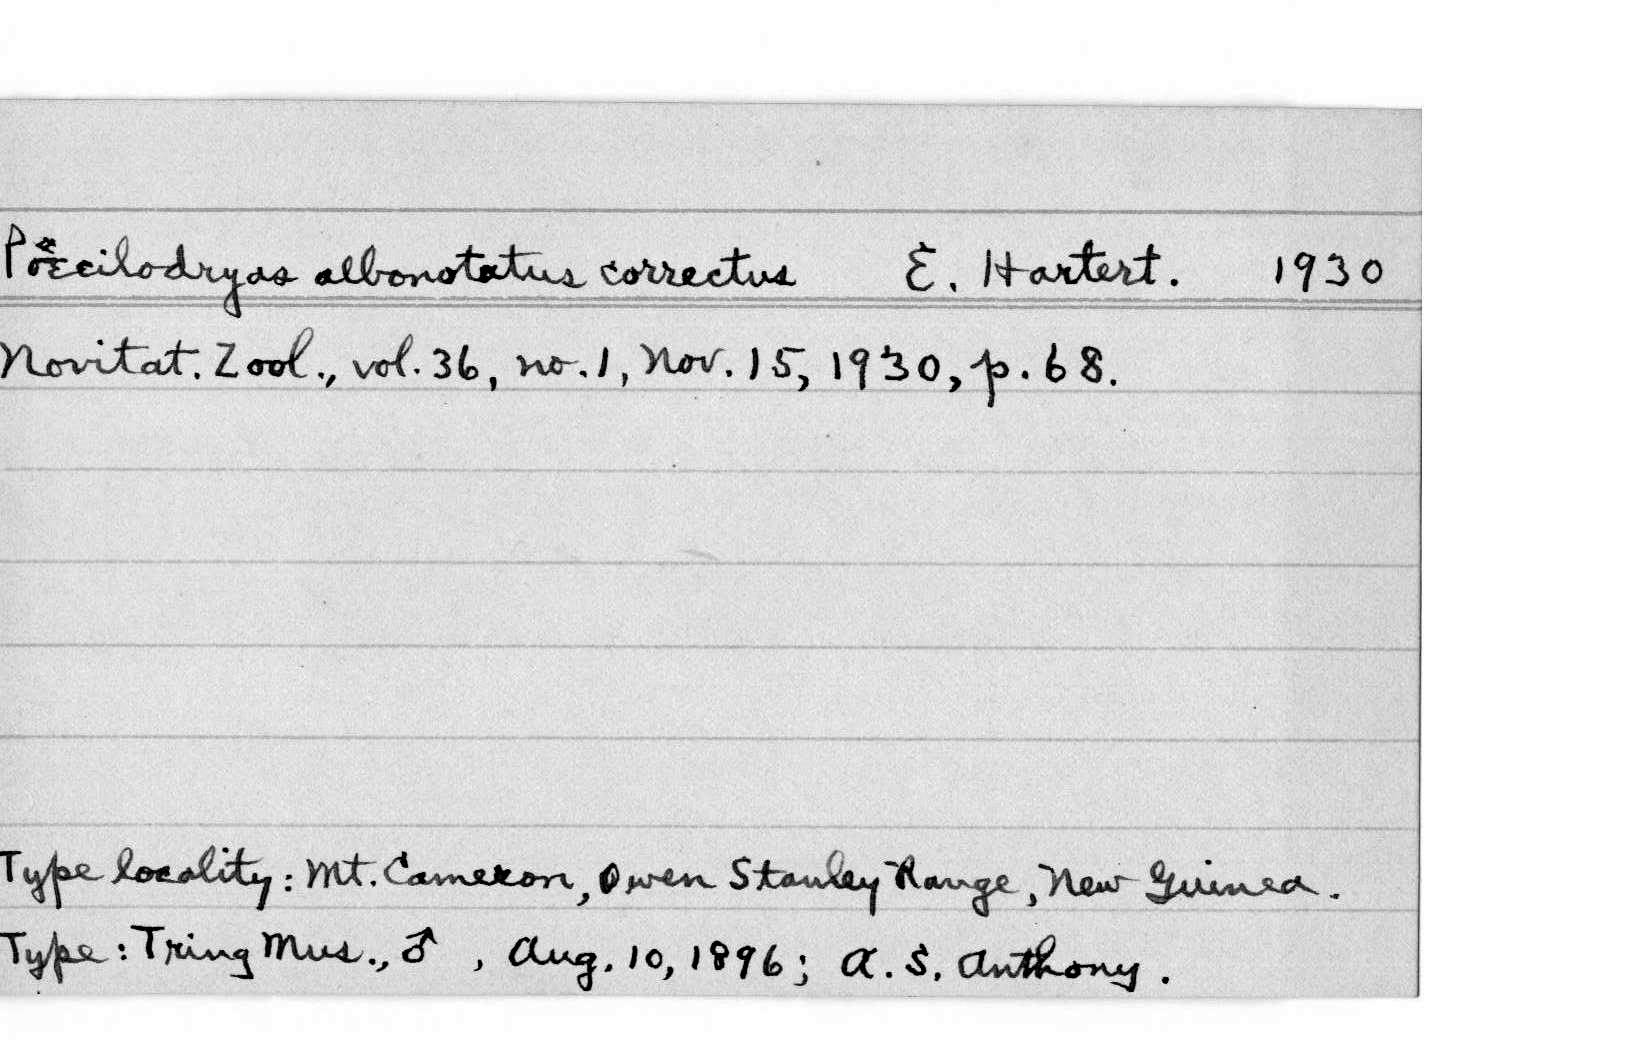 Poecilodryas albonotatus correctus E. Hartert. 1930
Novitat. Zool., vol. 36, no. 1, Nov. 15, 1930, p. 68.
Type locality: Mt. Cameron, Owen Stanley Range, New Guinea.
Type: Tring Mus., ♂, Aug. 10, 1896; A. S. Anthony.